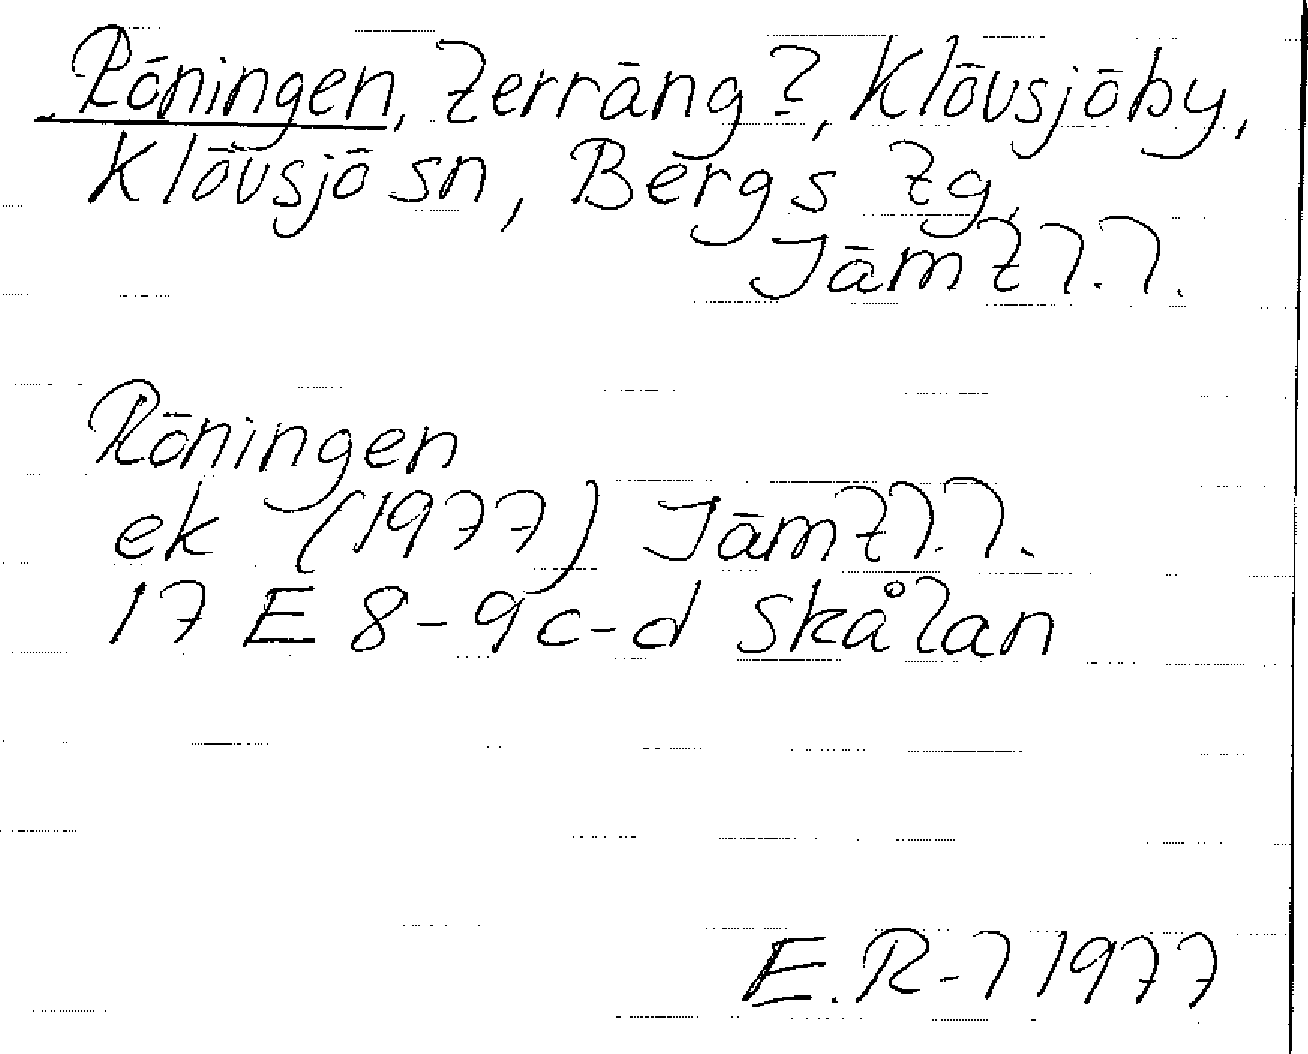 Röningen, terräng?, Klövsjöby,
Klövsjö sn, Bergs tg,
Jämtl.l.
Röningen
ek (1977) Jämtl.l.
17 E 8-9 c-d Skålan
E.R-l 1977